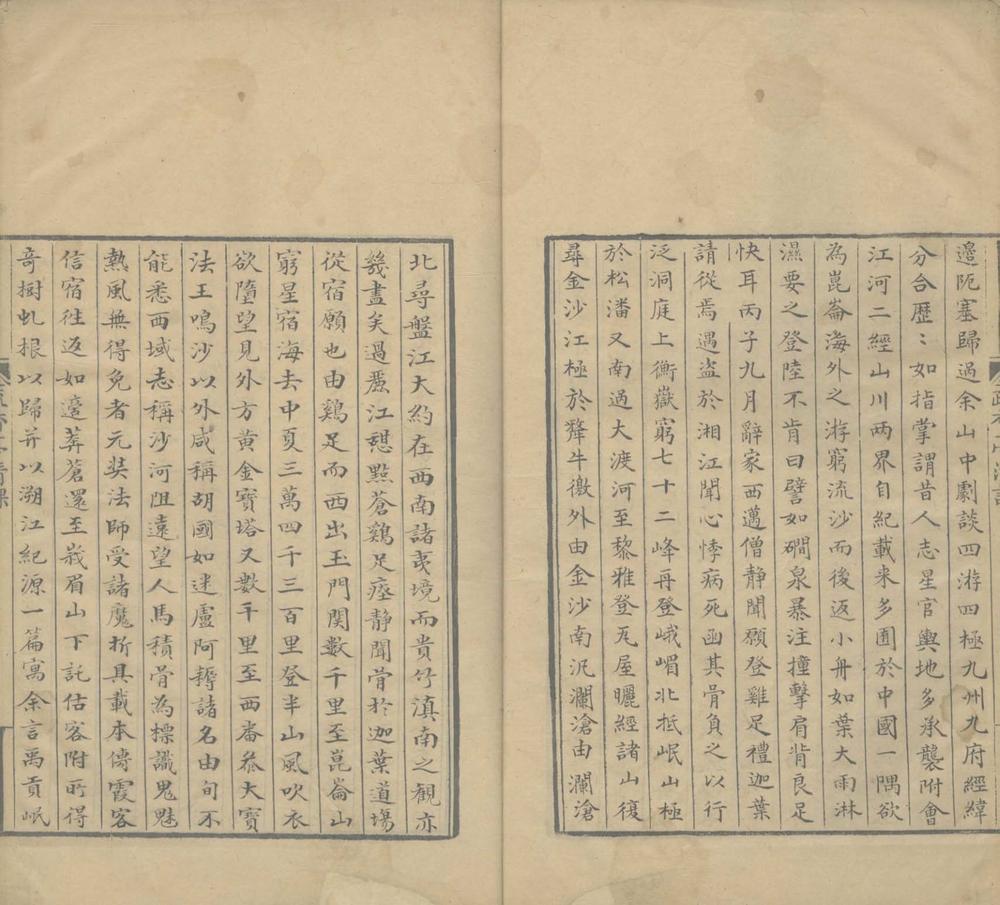 邉阨塞歸過余山中劇談四游四極九州九府經緯
分合歷〻如指掌謂昔人志星官輿地多承襲附會
江河二經山川兩界自紀載来多囿於中國一隅欲
為崑崙海外之游窮流沙而後返小舟如葉大雨淋
濕要之登陸不肯曰譬如磵泉暴注撞擊肩背良足
快耳丙子九月辭家西邁僧静聞願登雞足禮迦葉
請從焉遇盗於湘江聞心悸病死函其骨負之以行
泛洞庭上衡嶽窮七十二峰再登峨嵋北抵岷山極
於松潘又南過大渡河至黎雅登瓦屋曬經諸山復
尋金沙江極於犛牛徼外由金沙南汎瀾滄由瀾滄
北尋盤江大約在西南諸夷境而貴竹滇南之觀亦
幾盡矣過麗江憇㸃蒼鷄足瘞静聞骨於迦葉道場
從宿願也由鷄足而西出玉門関數千里至崑崙山
窮星宿海去中夏三萬四千三百里登半山風吹衣
欲墮望見外方黄金寶塔又數千里至西番叅大寶
法王鳴沙以外咸稱胡國如迷盧阿耨諸名由旬不
能悉西域志稱沙河阻遠望人馬積骨為標識鬼魅
熱風無得免者元奘法師受諸魔折具載本傳霞客
信宿往返如適莽蒼還至峩眉山下託估客附所得
奇樹虬根以歸并以溯江紀源一篇寓余言禹貢岷